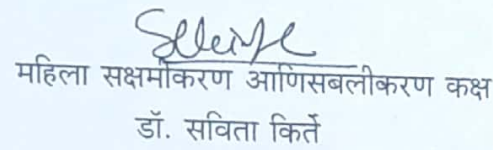 महिला सक्षमीकरण आणिसबलीकरण कक्ष
डॉ. सविता किर्ते